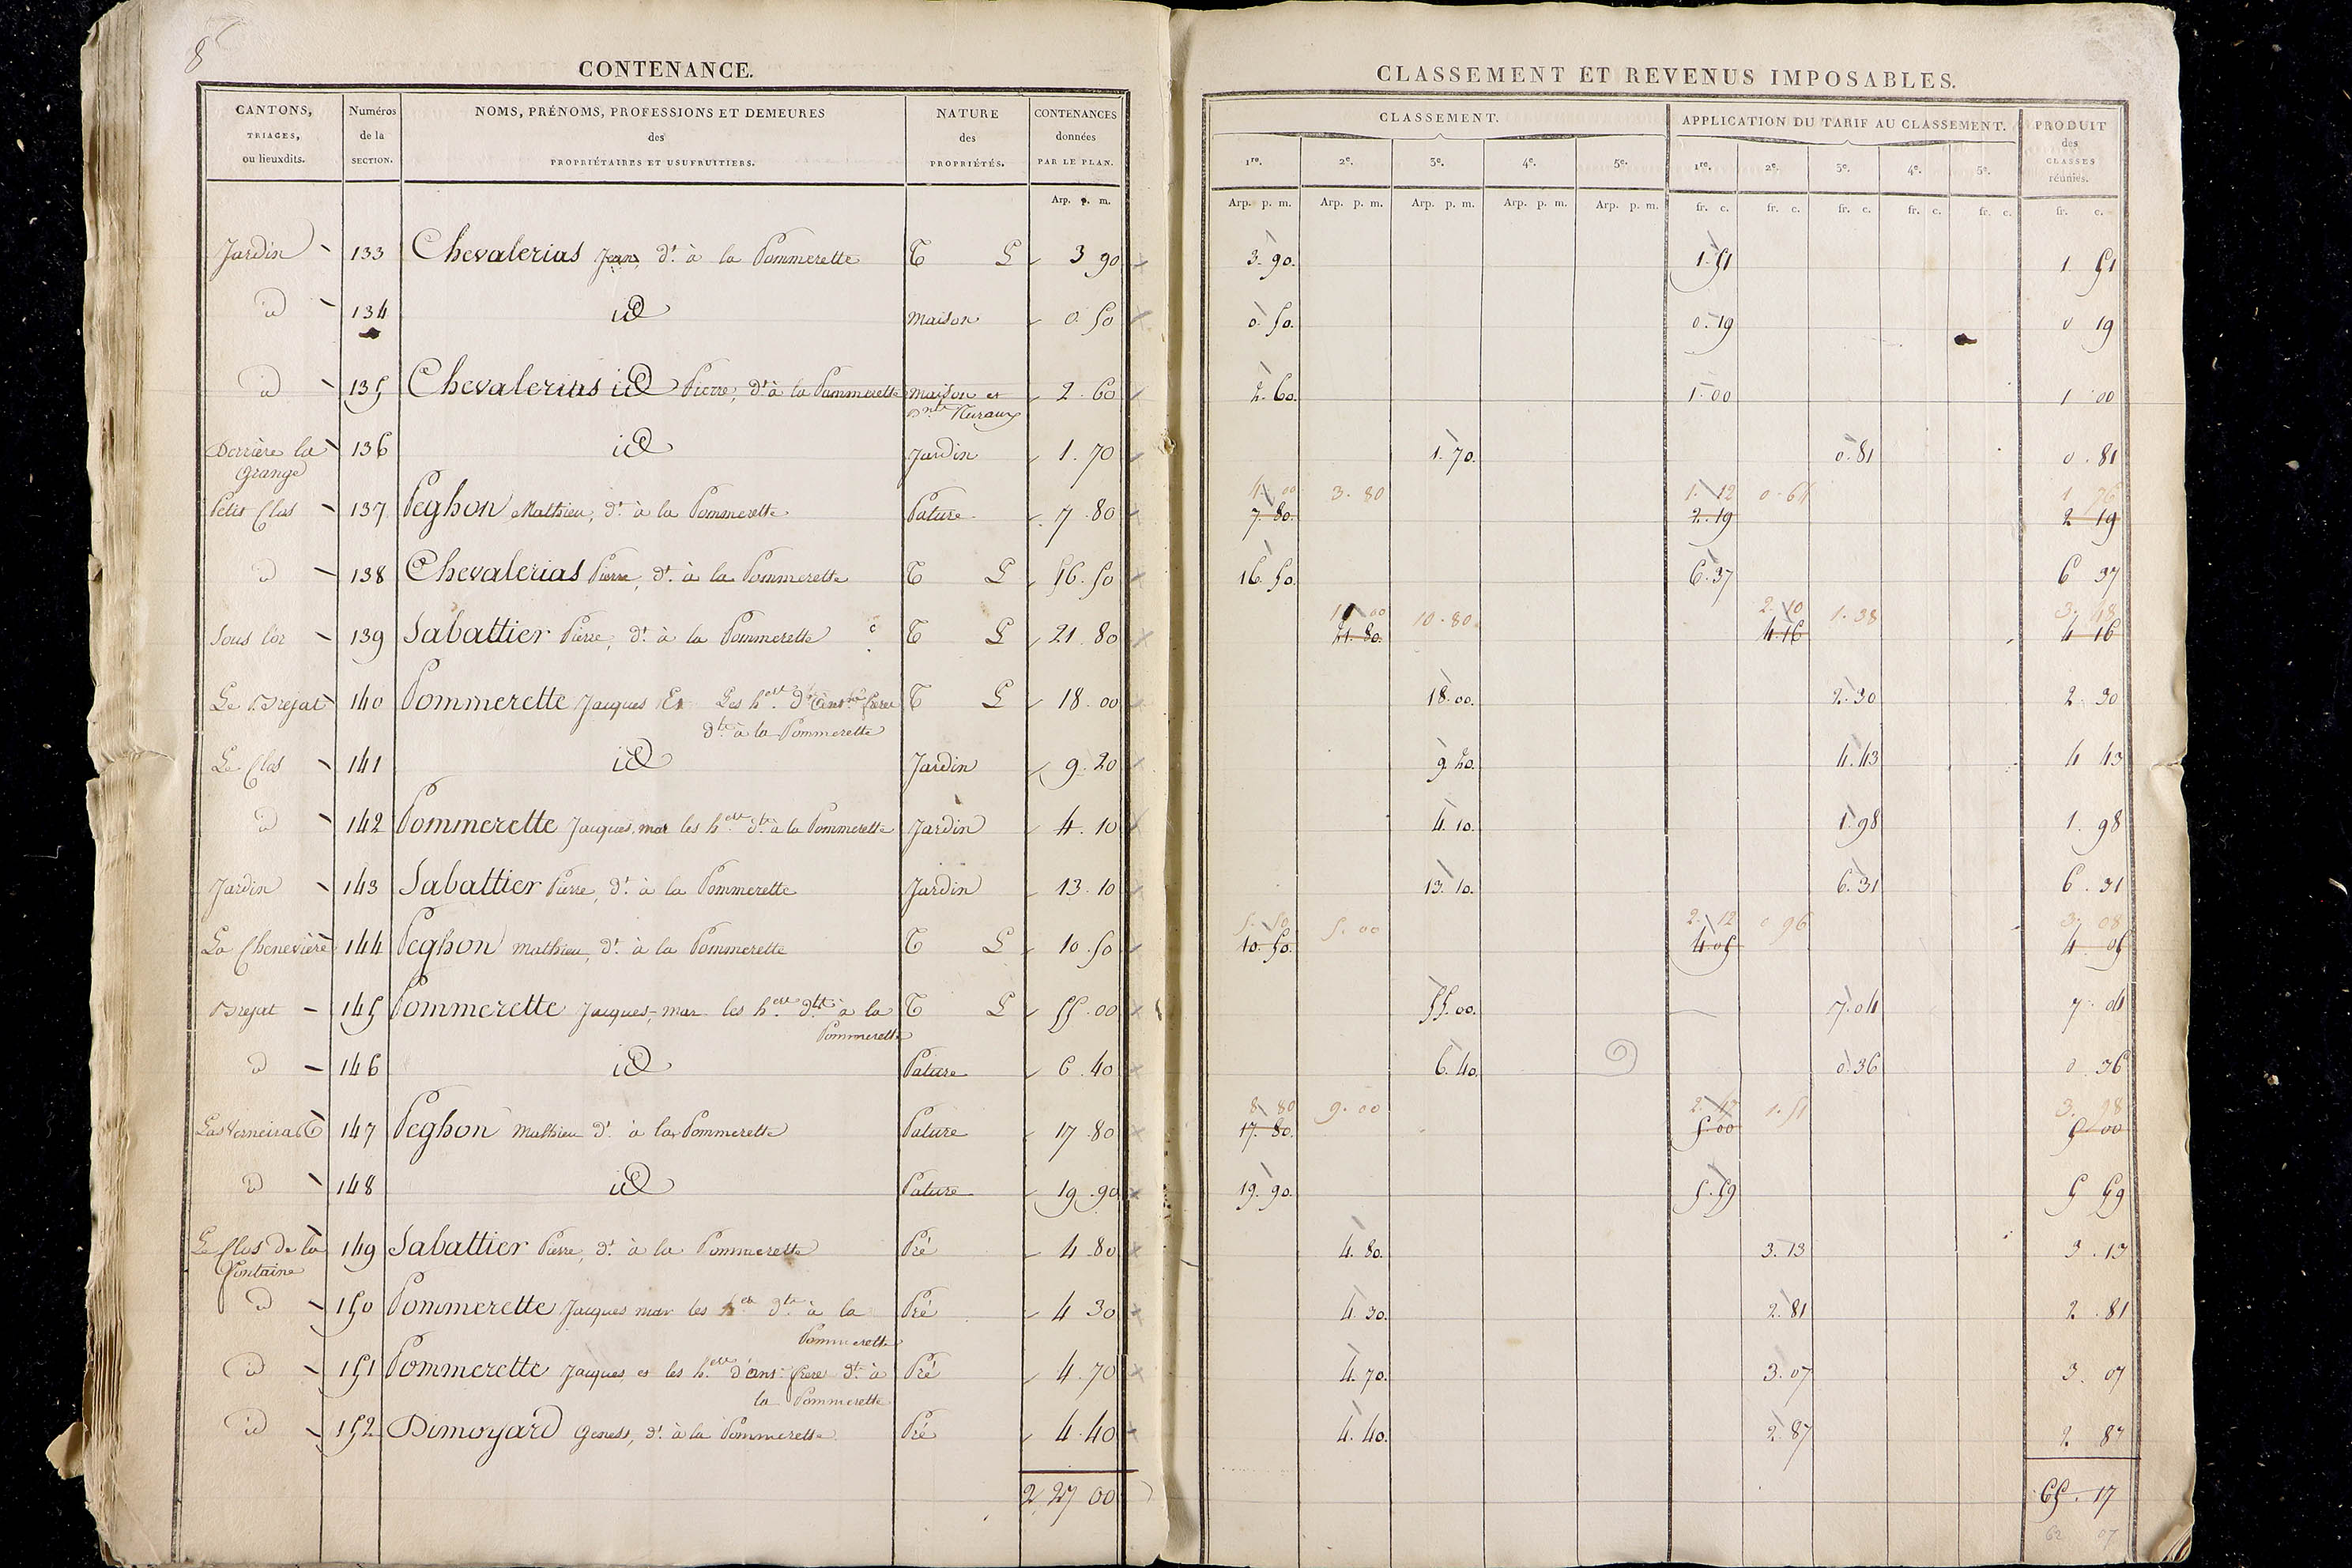 8
CONTENANCE.
CANTONS, TRIAGES, ou lieuxdits. | Numéros de la SECTION. | NOMS, PRÉNOMS, PROFESSIONS ET DEMEURES des PROPRIÉTAIRES ET USUFRUITIERS. | NATURE des PROPRIÉTÉS. | CONTENANCES données PAR LE PLAN.
Arp. p. m.
Jardin 133 Chevalerias Jean, dt. à la Pommerette T L 3 90
id 134 id maison 0. 50
id 135 Chevalerias id Pierre, dt à la Pommerette maison et 2. 60
Derrière la 136 id Jardin 1. 70
Grange
Petit Clos 137 Peghon Mathieu, dt. à la Pommerette Pature 7. 80
id 138 Chevalerias Pierre, dt. à la Pommerette T L 16. 50
Sous l'or 139 Sabattier Pierre, dt. à la Pommerette T L 21. 80
Le 140 Pommerette Jacques Et Les hers T L 18. 00
dts à la Pommerette
Le Clos 141 id Jardin 9. 20
id 142 Pommerette Jacques, mar les hers dts à la Pommerette Jardin 4. 10
Jardin 143 Sabattier Pierre, dt. à la Pommerette Jardin 13. 10
La Chenevière 144 Peghon Mathieu, dt. à la Pommerette T L 10. 50
145 Pommerette Jacques, mar les hers dts à la T L 55. 00
Pommerette
id 146 id Pature 6. 40
147 Peghon Mathieu dt. à la Pommerette Pature 17. 80
id 148 id Pature 19. 90
Le Clos de la 149 Sabattier Pierre, dt. à la Pommerette Pré 4. 80
Fontaine
id 150 Pommerette Jacques mar les hers dts à la Pré 4 30
Pommerette
id 151 Pommerette Jacques, et les hers d'ant. frere dts à Pré 4. 70
la Pommerette
id 152 Dimoyard Genest, dt. à la Pommerette Pré 4. 40
2 27 00
CLASSEMENT ET REVENUS IMPOSABLES.
CLASSEMENT. | APPLICATION DU TARIF AU CLASSEMENT. | PRODUIT des CLASSES réunies.
1re. 2e. 3e. 4e. 5e. 1re. 2e. 3e. 4e. 5e.
Arp. p. m. Arp. p. m. Arp. p. m. Arp. p. m. Arp. p. m. fr. c. fr. c. fr. c. fr. c. fr. c. fr. c.
3. 90. 1. 51 1. 51
0. 50. 0. 19 0 19
2. 60. 1. 00 1 00
1. 70. 0. 81 0. 81
4. 00 3. 80 1. 12 0. 64 1 76
7. 80. 2. 19 2 19
16. 50. 6. 37 6 37
11 00 10. 80. 2. 10 1. 38 3. 48
21. 80. 4. 16 4 16
18. 00. 2. 30 2. 30
9. 20. 4. 43 4 43
4. 10. 1. 98 1. 98
13. 10. 6. 31 6. 31
5. 50 5. 00 2. 12 0 96 3. 08
10. 50. 4. 05 4 05
55. 00. 7. 04 7. 04
6. 40. 0. 36 0. 36
8. 80 9. 00 2. 47 1. 51 3. 98
17. 80. 5. 00 5 00
19. 90. 5. 59 5 59
4. 80. 3. 13 3. 13
4. 30. 2. 81 2. 81
4. 70. 3. 07 3. 07
4. 40. 2. 87 2 87
65. 17
62 07